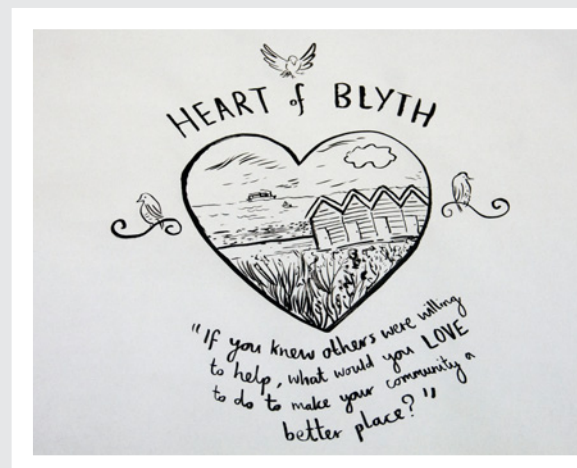 HEART of BLYTH
"If you knew others were willing
to help, what would you LOVE
to do to make your community a
better place?"